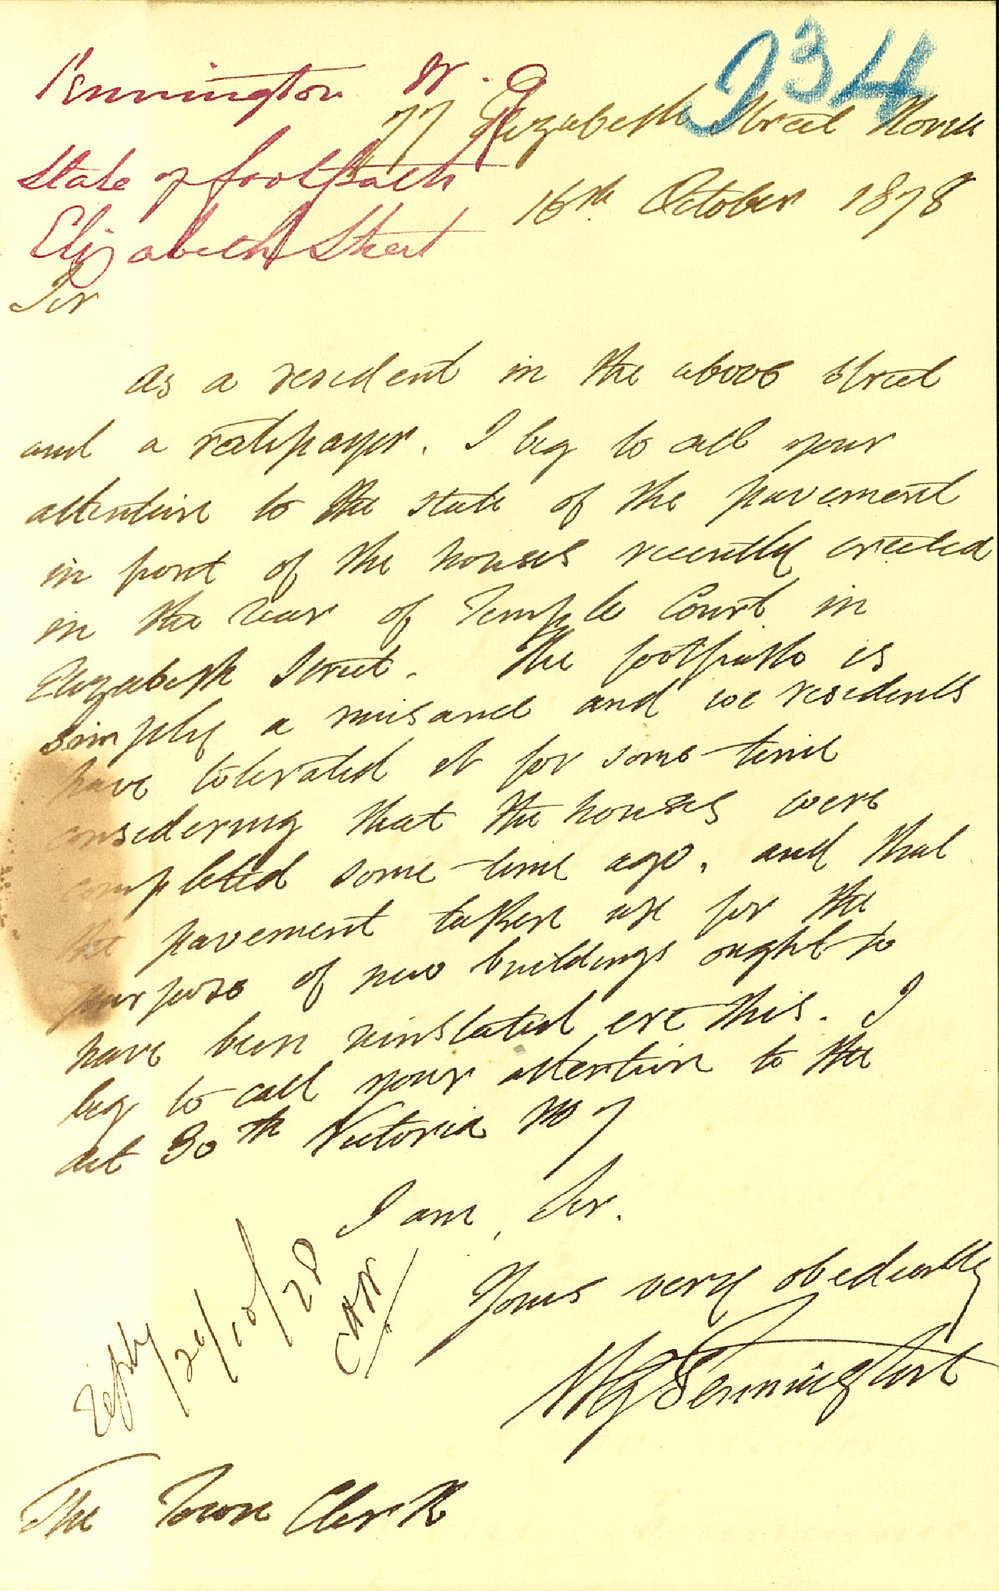 Pennington W. G
934
State of footpath
Elizabeth Street
77 Elizabeth Street North
16th October 1878
Sir
As a resident in the above street
and a ratepayer. I beg to call your
attention to the state of the pavement
in front of the houses recently erected
in the rear of Temple Court in
Elizabeth Street. The footpath is
simply a nuisance and we residents
have tolerated it for some time
considering that the houses were
completed some time ago, and that
the pavement taken up for the
purpose of new buildings ought to
have been reinstated ere this. I
beg to call your attention to the
act 30th Victoria No 7
I am, Sir.
Yours very obediently
W G Pennington
Reply
The Town Clerk